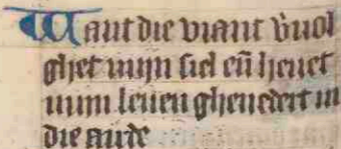 Want die viant v̾uol
ghet mijn siel eñ heuet
mijn leuen ghenedert in
die aerde